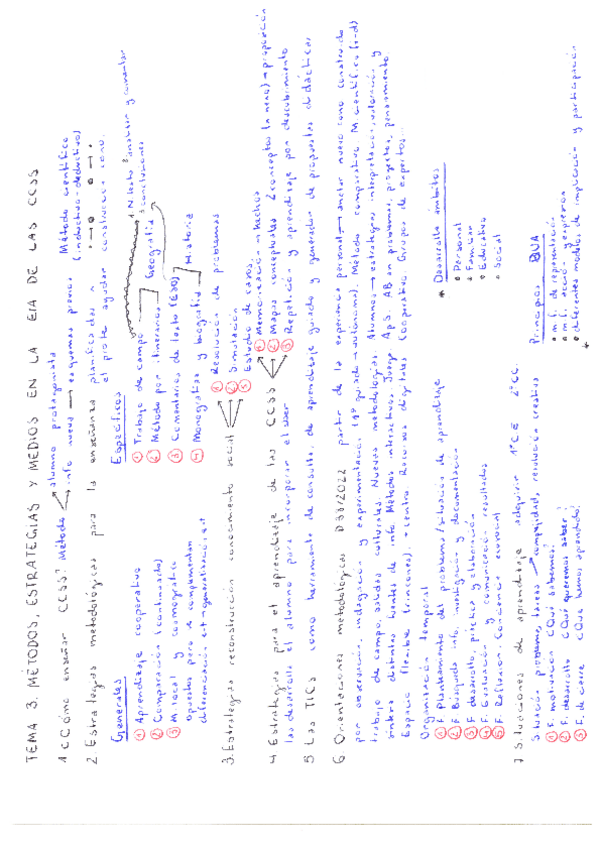 TEMA 3. MÉTODOS, ESTRATEGIAS Y MEDIOS EN LA E/A DE LAS CCSS
1 ¿Cómo enseñar CCSS? Método
alumno protagonista
info nueva → esquemas previos
Método científico
(inductivo-deductivo)
2 Estrategias metodológicas para la enseñanza planificadas x
el profe ayudar construcción cono.
Generales
① Aprendizaje cooperativo
② Comparación (continuada)
③ M local y cosmográfico
opuestos pero se complementan
diferenciación generalización
Específicos
① Trabajo de campo
② Método por itinerarios
③ Comentarios de texto
④ Monografías y biografía
Geografía
Historia
1 N texto 2 analizar y comentar
3 conclusiones
3. Estrategias reconstrucción conocimiento social
① Resolución de problemas
② Simulación
③ Estudio de casos
4 Estrategias para el aprendizaje de las CCSS
las desarrolla el alumno para incorporar el saber
① Memorización → hechos
② Mapas conceptuales 2 conceptos (n nexo) → proposición
③ Repetición y aprendizaje por descubrimiento
5 Las TICs como herramienta de consulta, de aprendizaje guiado y generador de propuestas didácticas
6 Orientaciones metodológicas D38/2022 partir de la experiencia personal → sector nuevo como construido
por observación, indagación y experimentación (1º guiado → autónoma). Método comparativo. M científico (i-d)
trabajo de campo, salidas culturales. Nuevas metodologías. Alumnos → estrategias interpretación, valoración y
síntesis distintas fuentes de info. Métodos interactivos. Juego. ApS. AB en problemas, proyectos, pensamiento.
Espacio flexible (rincones) + centro. Recursos digitales. Cooperativo. Grupos de expertos...
Organización temporal
① F Planteamiento del problema/situación de aprendizaje
② F Búsqueda info, investigación y documentación
③ F desarrollo, práctica y elaboración
④ F Evaluación y comunicación resultados
⑤ F Reflexión. Conciencia
Desarrollo ámbitos
Personal
Familiar
Educativo
Social
7 Situaciones de aprendizaje adquirir 1ºCE 2ºCC.
Situación problema, tareas → complejidad, resolución creativa
① F. motivación ¿Qué sabemos?
② F. desarrollo ¿Qué queremos saber?
③ F. de cierre ¿Qué hemos aprendido?
Principios DUA
m f. de representación
m f. acción y expresión
diferentes modelos de implicación y participación